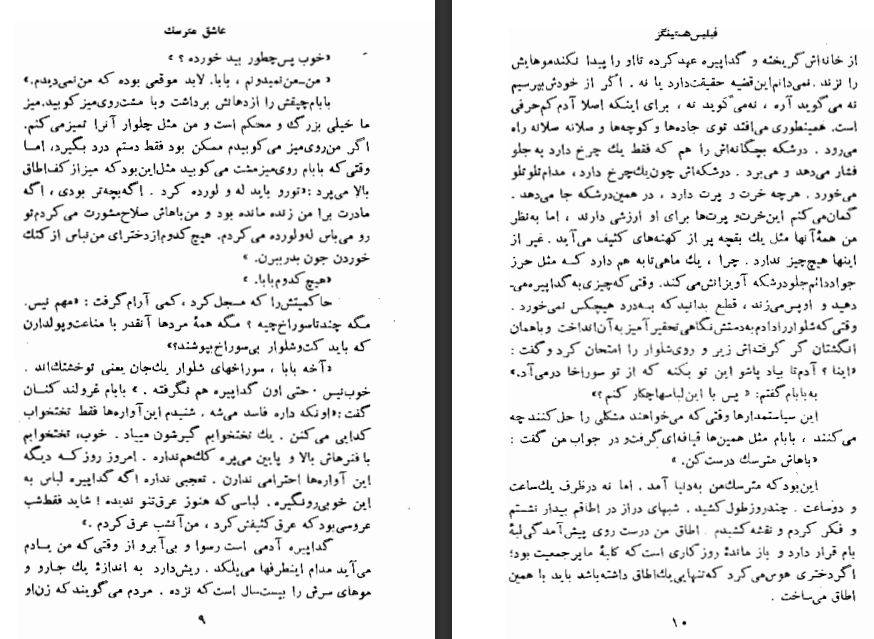 عاشق مترسك
«خوب پس‌چطور بید خورده ؟ »
« من‌ـ‌من‌نمیدونم ، بابا. لابد موقعی بوده که من‌نمی‌دیدم.»
بابام‌چپقش را ازدهانش برداشت وبا مشت‌روی‌میز کوبید. میز
ما خیلی بزرگ و محکم است و من مثل چلوار آنرا تمیزمی‌کنم.
اگر من‌روی‌میز می‌کوبیدم ممکن بود فقط دستم درد بگیرد، امـا
وقتی‌که بابام روی‌میزمشت می‌کوبید مثل‌این‌بود که میزاز کف‌اطاق
بالا می‌پرد : «تورو باید له و لورده کرد . اگه‌بچه‌تر بودی ، اگه
مادرت برا من زنده مانده بود و من‌باهاش صلاح‌مشورت می‌کردم‌تو
رو می‌باس له‌ولورده می‌کردم. هیچ‌کدوم‌ازدخترای من‌نباس ازکتك
خوردن جون بدرببرن. »
«هیچ‌کدوم‌بابا. »
حاکمیتش‌را که مسجل‌کرد ، کمی آرام‌گرفت : «مهم نیس.
مگه چندتاسوراخ‌چیه ؟ مگه همهٔ مردها آنقدر با مناعت‌وپولدارن
که باید کت‌وشلوار بی‌سوراخ‌بپوشند؟»
«آخه بابا ، سوراخهای شلوار یك‌جان یعنی توخشتك‌اند .
خوب‌نیس . حتی اون گداپیره هم نگرفته . » بابام غرولند کنـان
گفت : «اونکه داره فاسد می‌شه . شنیدم این‌آواره‌ها فقط تختخواب
گدایی می‌کنن . یك تختخوابم گیرشون میباد . خوب، تختخوابم
با فنرهاش بالا و پایین می‌پره کك‌هم‌نداره . امروز روز کـه دیگه
این آواره‌ها احترامی ندارن . تعجبی نداره اگه گداپیره لباس به
این خوبی‌رونگیره . لباسی که هنوز عرق‌تنو ندیده ! شاید فقط‌شب
عروسی‌بود که عرق کثیفش کرد ، من‌آنشب عرق کردم .»
گداپیره آدمی است رسوا و بی‌آبرو از وقتی‌که من یـادم
می‌آید مدام اینطرفها می‌پلکد . ریش‌دارد به اندازهٔ یك جـارو و
موهای سرش را بیست‌سال است‌که نزده . مردم می‌گویند که زن‌او
۹
فیلیس‌هستینگز
از خانه‌اش‌گریخته و گداپیره عهدکرده تااو را پیدا نکندموهایش
را نزند . نمی‌دانم‌این‌قضیه حقیقت‌دارد یا نه . اگر از خودش‌بپرسیم
نه می‌گوید آره ، نه‌می‌گوید نه ، برای اینکه اصلا آدم‌کم‌حرفی
است. همینطوری می‌افتد توی جاده‌ها و کوچه‌ها و صلانه صلانه راه
می‌رود . درشکه بچگانه‌اش را هم که فقط یك چرخ دارد به‌جلو
فشار می‌دهد و می‌برد . درشکه‌اش چون‌یك‌چرخ دارد ، مدام‌تلوتلو
می‌خورد . هرچه خرت و پرت دارد ، در همین‌درشکه جا می‌دهد .
گمان‌می‌کنم این‌خرت‌و پرت‌ها برای او ارزشی دارند ، اما به‌نظر
من همهٔ‌آنها مثل یك بقچه پر از کهنه‌های کثیف می‌آید . غیر از
اینها هیچ‌چیز ندارد . چرا ، یك ماهی‌تابه هم دارد کـه مثل حرز
جواددائم‌جلودرشکه آویزانش‌می‌کند. وقتی‌که‌چیزی‌به‌گداپیره‌میـ
دهید و اوپس‌می‌زند ، قطع بدانید که بـه‌درد هیچکس نمی‌خورد .
وقتی‌که‌شلواررادادم‌به‌دستش‌نگاهی‌تحقیرآمیزبه‌آن‌انداخت وباهمان
انگشتان گر گرفته‌اش زیر و روی‌شلوار را امتحان کرد و گفت :
«اینا ؟ آدم‌تا بیاد پاشو این تو بکنه که از تو سوراخا درمی‌آد.»
به‌بابام‌گفتم: « پس با این‌لباسهاچکار کنم ؟»
این سیاستمدارها وقتی‌که می‌خواهند مشکلی را حل‌کنند چه
می‌کنند ، بابام مثل همین‌ها قیافه‌ای‌گرفت‌و در جواب من گفت :
«باهاش مترسك درست‌کن. »
این‌بودکه مترسك‌من به‌دنیا آمد . اما نه درظرف یك‌ساعت
و دوساعت . چندروزطول‌کشید . شبهای دراز در اطاقم بیدار نشستم
و فکر کردم و نقشه کشیدم . اطاق من درست روی پیش‌آمدگی‌لبهٔ
بام قرار دارد و باز ماندهٔ روزگاری است‌که کلبهٔ ما پرجمعیت بود؛
اگردختری هوس‌می‌کرد که‌تنهایی‌یك‌اطاق داشته‌باشد باید با همین
اطاق می‌ساخت .
۱۰